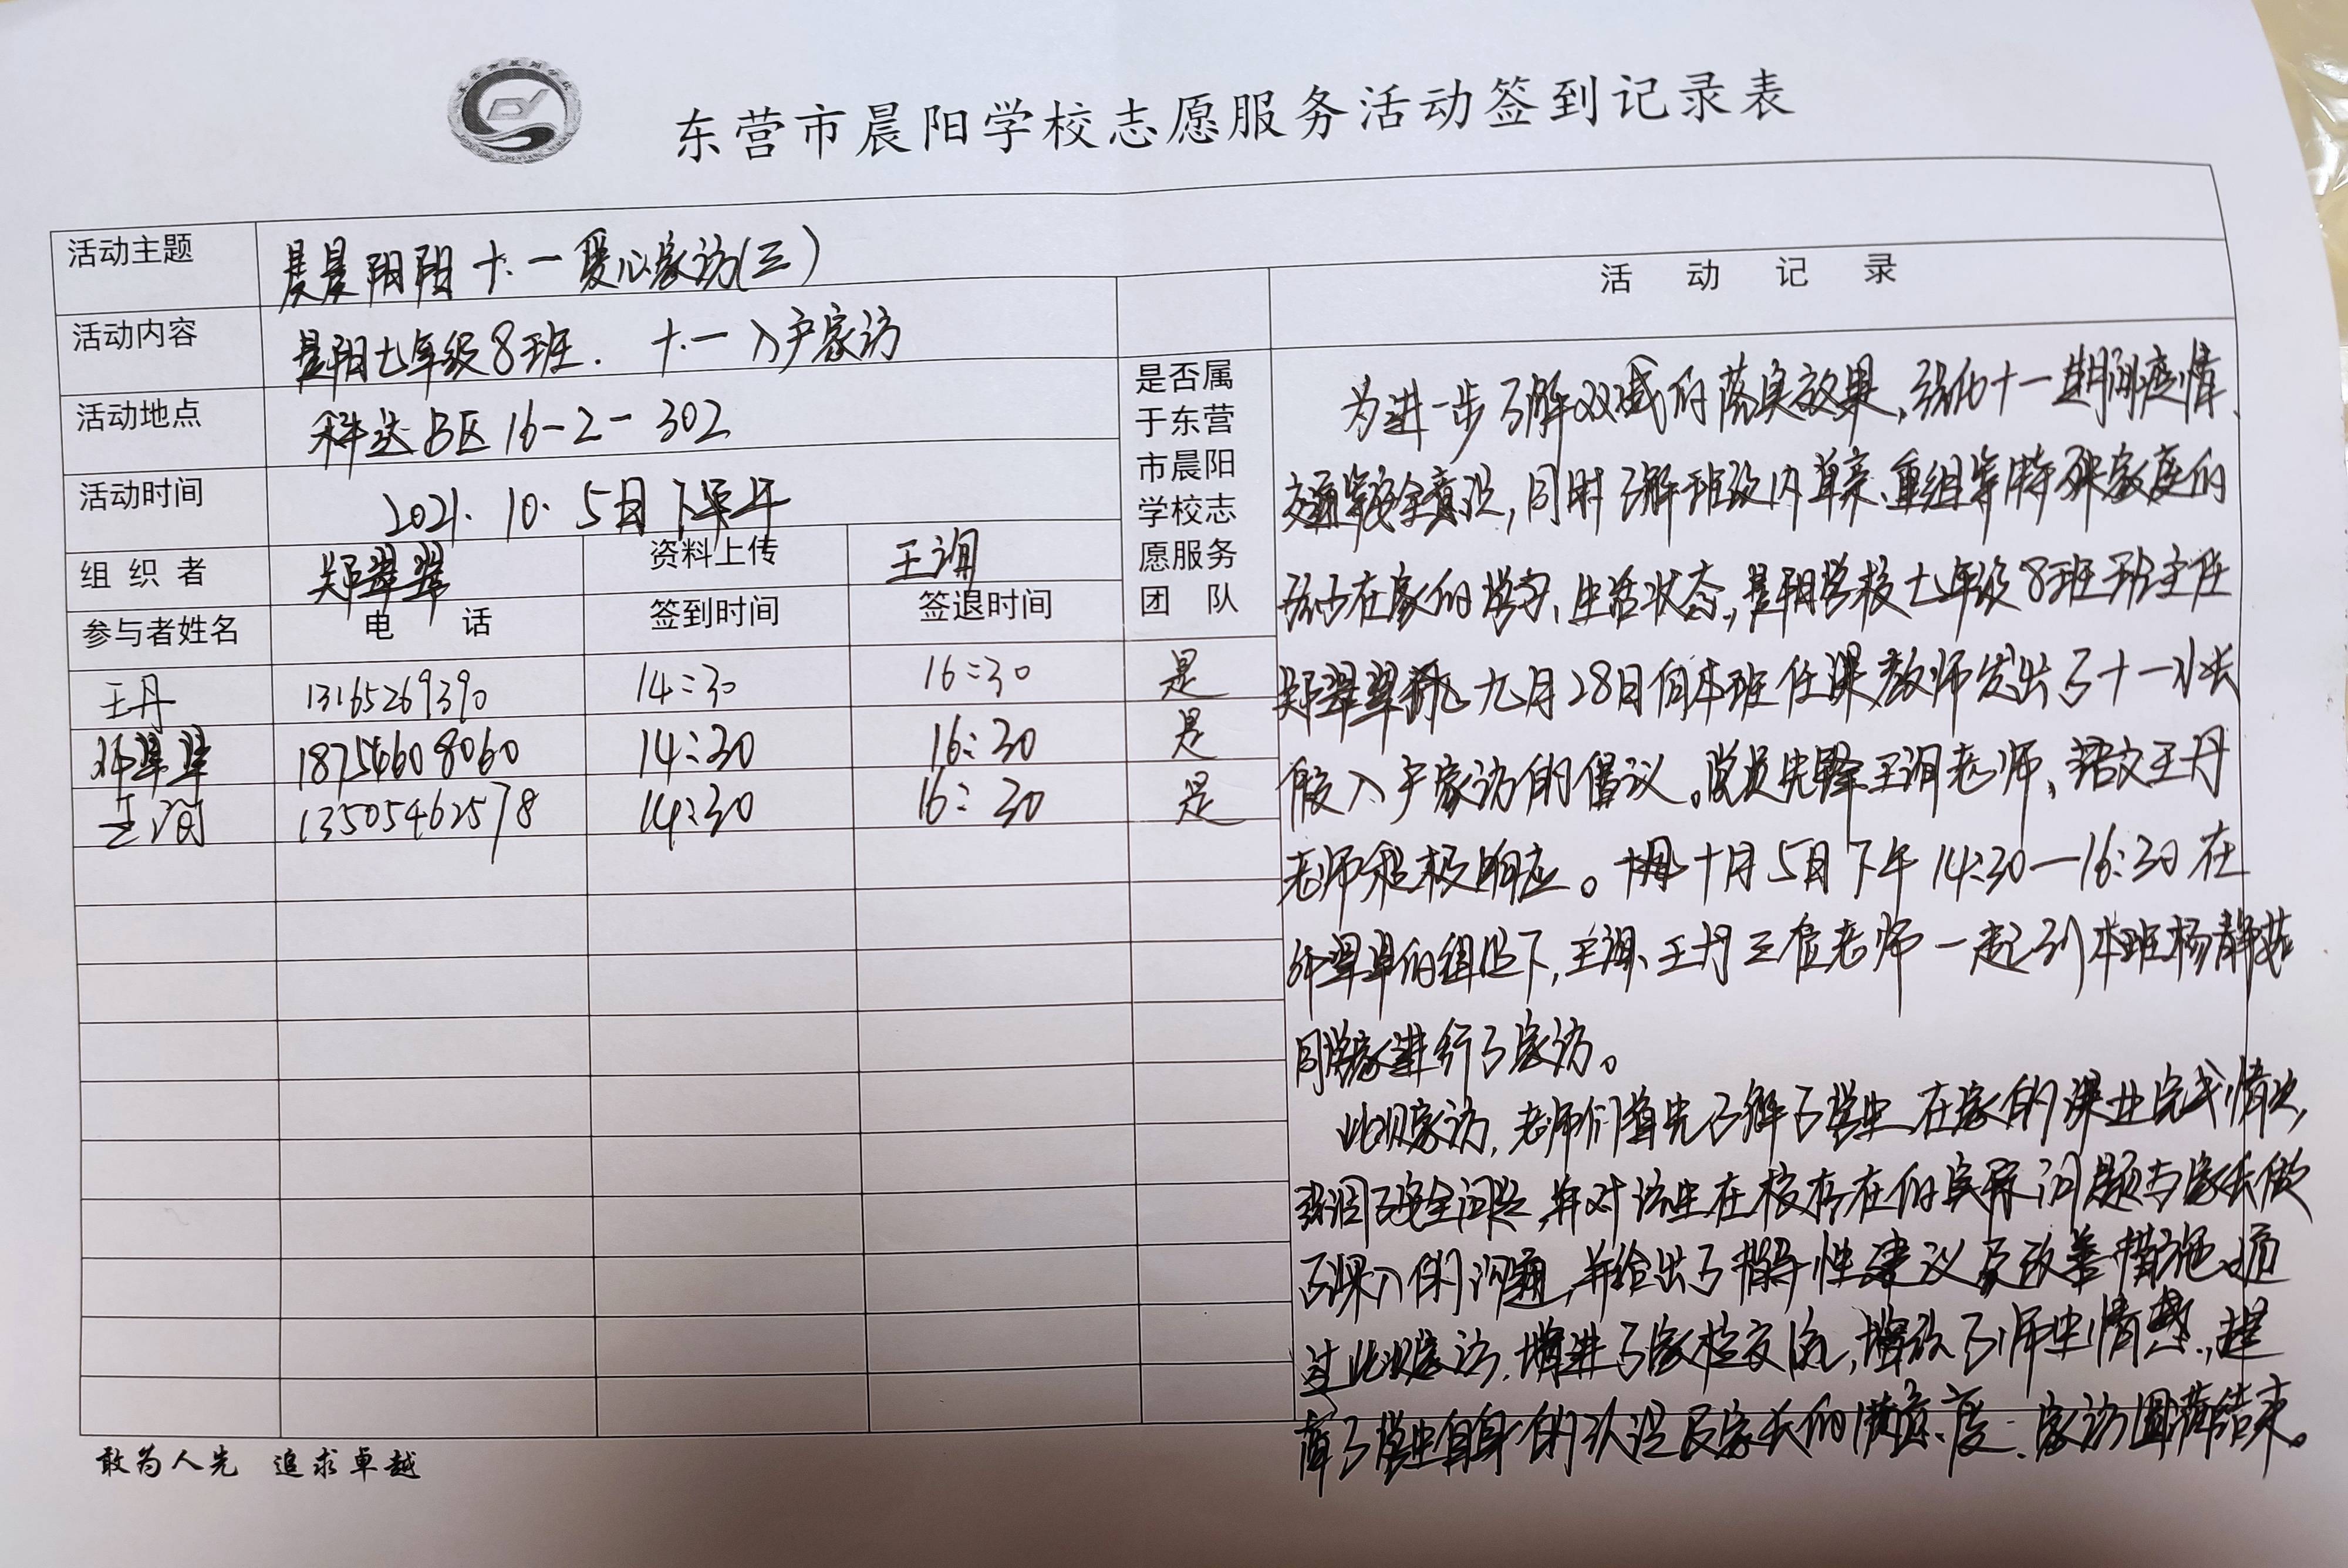 东营市晨阳学校志愿服务活动签到记录表
活动主题 晨晨阳阳 十.一爱心家访(三)
活动内容 晨阳七年级8班. 十.一入户家访
活动地点 科达B区16-2-302
活动时间 2021.10.5日下午
组织者 郑翠翠 资料上传 王询
参与者姓名 电话 签到时间 签退时间
是否属
于东营
市晨阳
学校志
愿服务
团队
王丹 13165269390 14:30 16:30 是
郑翠翠 18754608060 14:30 16:30 是
王询 13505462578 14:30 16:30 是
活动记录
为进一步了解双减的落实效果,强化十一期间疫情、
交通等安全意识,同时了解班级内单亲、重组等特殊家庭的
孩子在家的学习、生活状态,晨阳学校七年级8班班主任
郑翠翠 九月28日向本班任课教师发出了十一小长
假入户家访的倡议。党员先锋王询老师、语文王丹
老师积极响应。 十月5日下午14:30—16:30在
郑翠翠的组织下,王询、王丹三位老师一起到本班杨静茹
同学家进行了家访。
此次家访,老师们首先了解了学生在家的课业完成情况,
强调了安全问题,并对该生在校存在的实际问题与家长做
了深入的沟通,并给出了指导性建议及改善措施。通
过此次家访,增进了家校交流,增放了师生情感,提
高了学生自身的认识及家长的满意度.家访圆满结束。
敢为人先 追求卓越